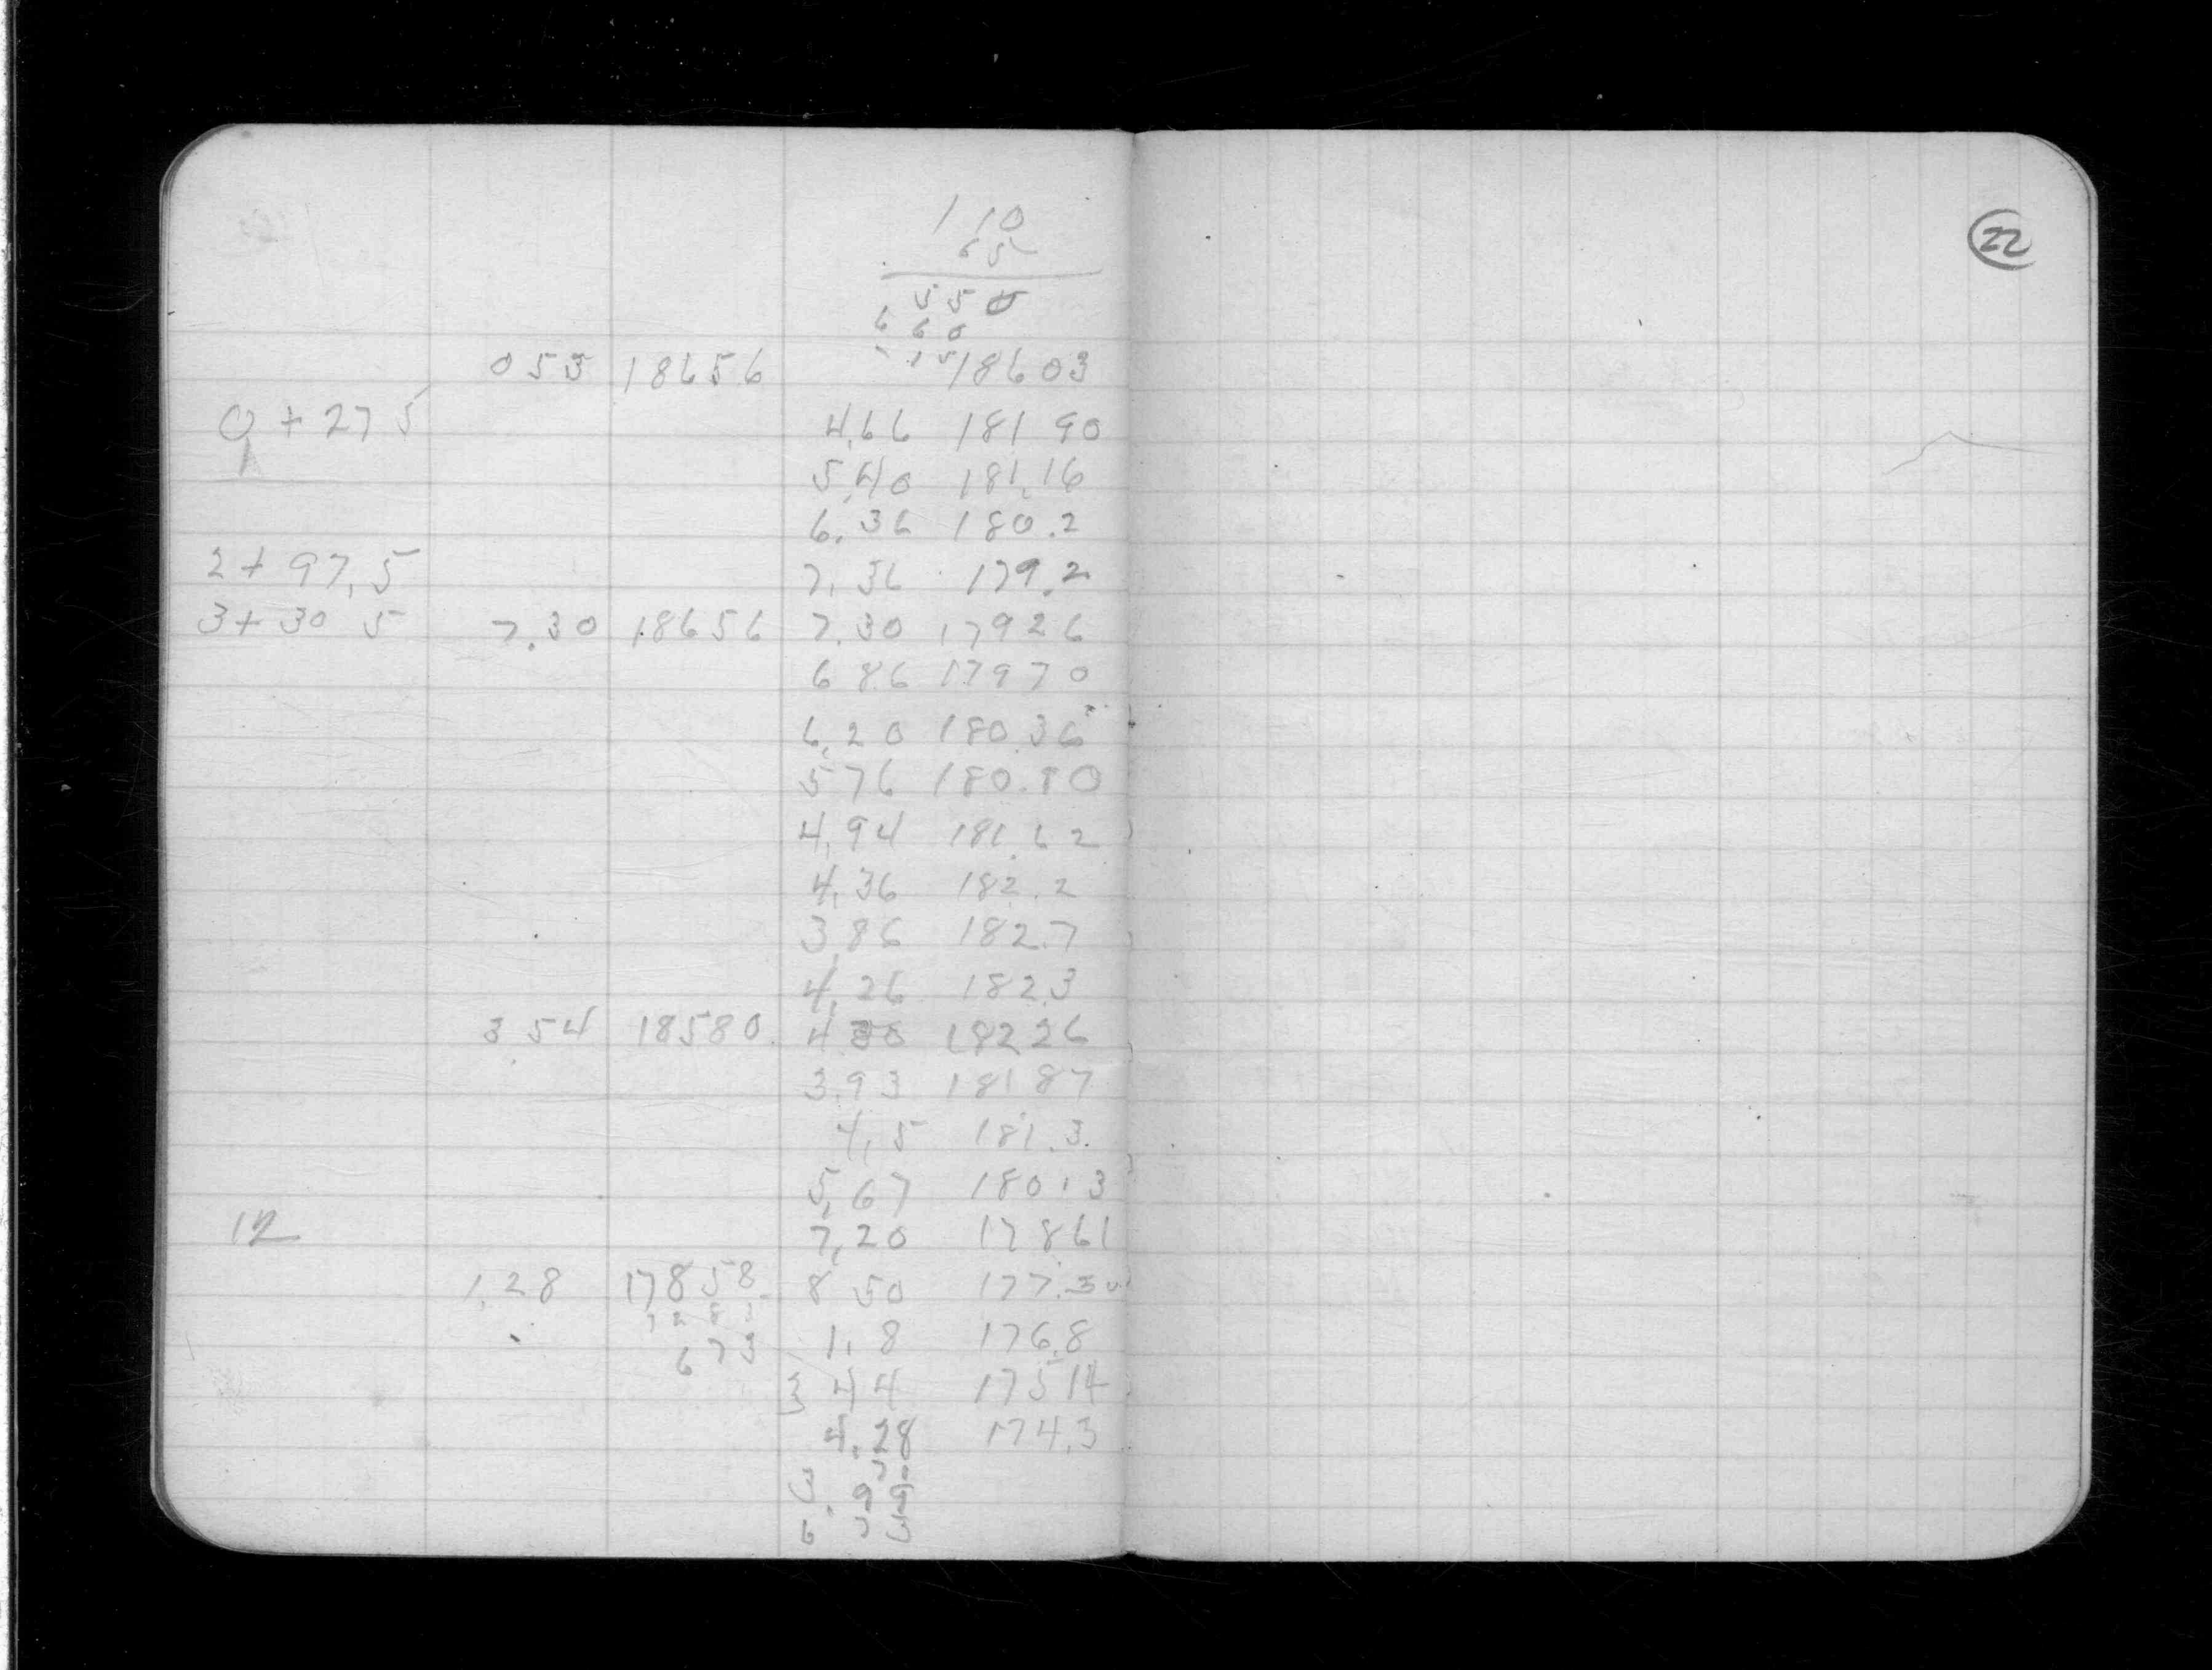 110
65
550
660
053 18656 18603
0+275 4.66 181 90
5.40 181.16
6.36 180.2
2+97.5 7.36 179.2
3+30 5 7.30 18656 7.30 17926
6 86 17970
6.20 180 36
5 76 180.80
4.94 181.62
4.36 182.2
3 86 182.7
4.26 182.3
3 54 18580 18226
3.93 181 87
4.5 181.3
5.67 180.13
12 7.20 17861
1.28 17858 8 50 177.30
673 1.8 176.8
3 44 17514
4.28 174.3
22